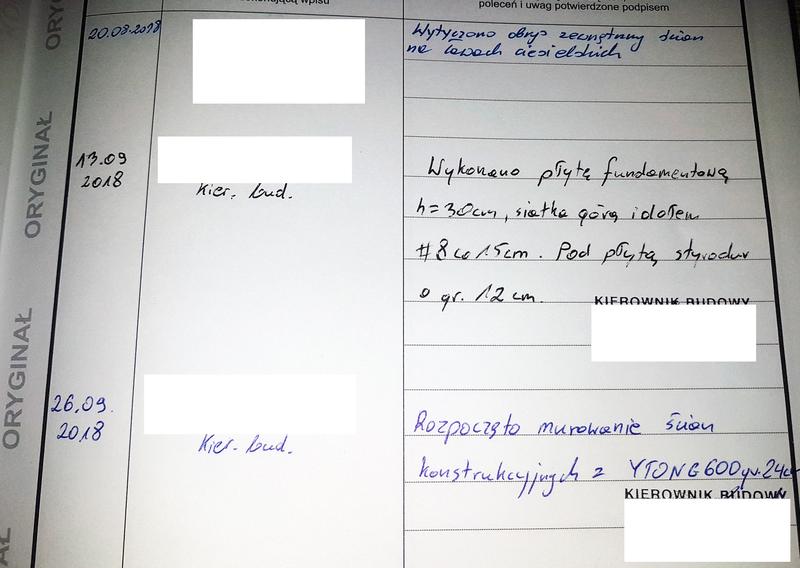 wpisu
poleceń i uwag potwierdzone podpisem
ORYGINAŁ
20.08.2018
Wytyczono obrys zewnętrzny ścian
na ławach ciesielskich
ORYGINAŁ
13.09
2018
Kier. bud.
Wykonano płytę fundamentową
h=30cm, siatka górą i dołem
#8 co 15cm. Pod płytą styrodur
o gr. 12 cm.
KIEROWNIK BUDOWY
ORYGINAŁ
26.09.
2018
Kier. bud.
Rozpoczęto murowanie ścian
konstrukcyjnych z YTONG 600 gr. 24cm
KIEROWNIK BUDOWY